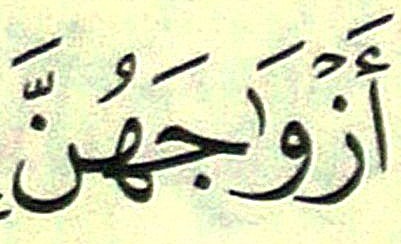 أَزْوَاجَهُنَّ